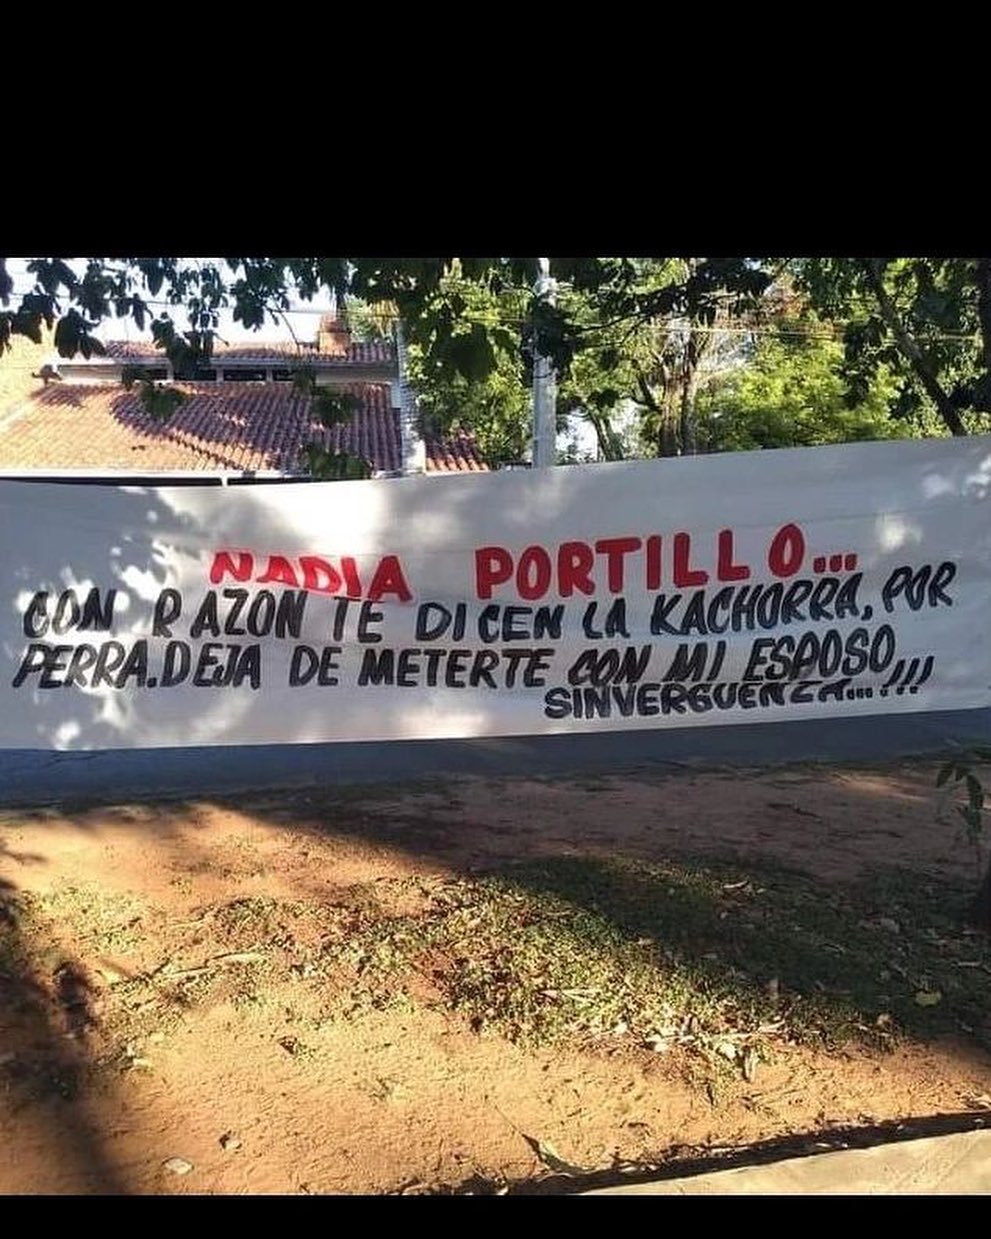 NADIA PORTILLO...
CON RAZON TE DICEN LA KACHORRA, POR
PERRA.DEJA DE METERTE CON MI ESPOSO,,,
SINVERGUENZA...!!!